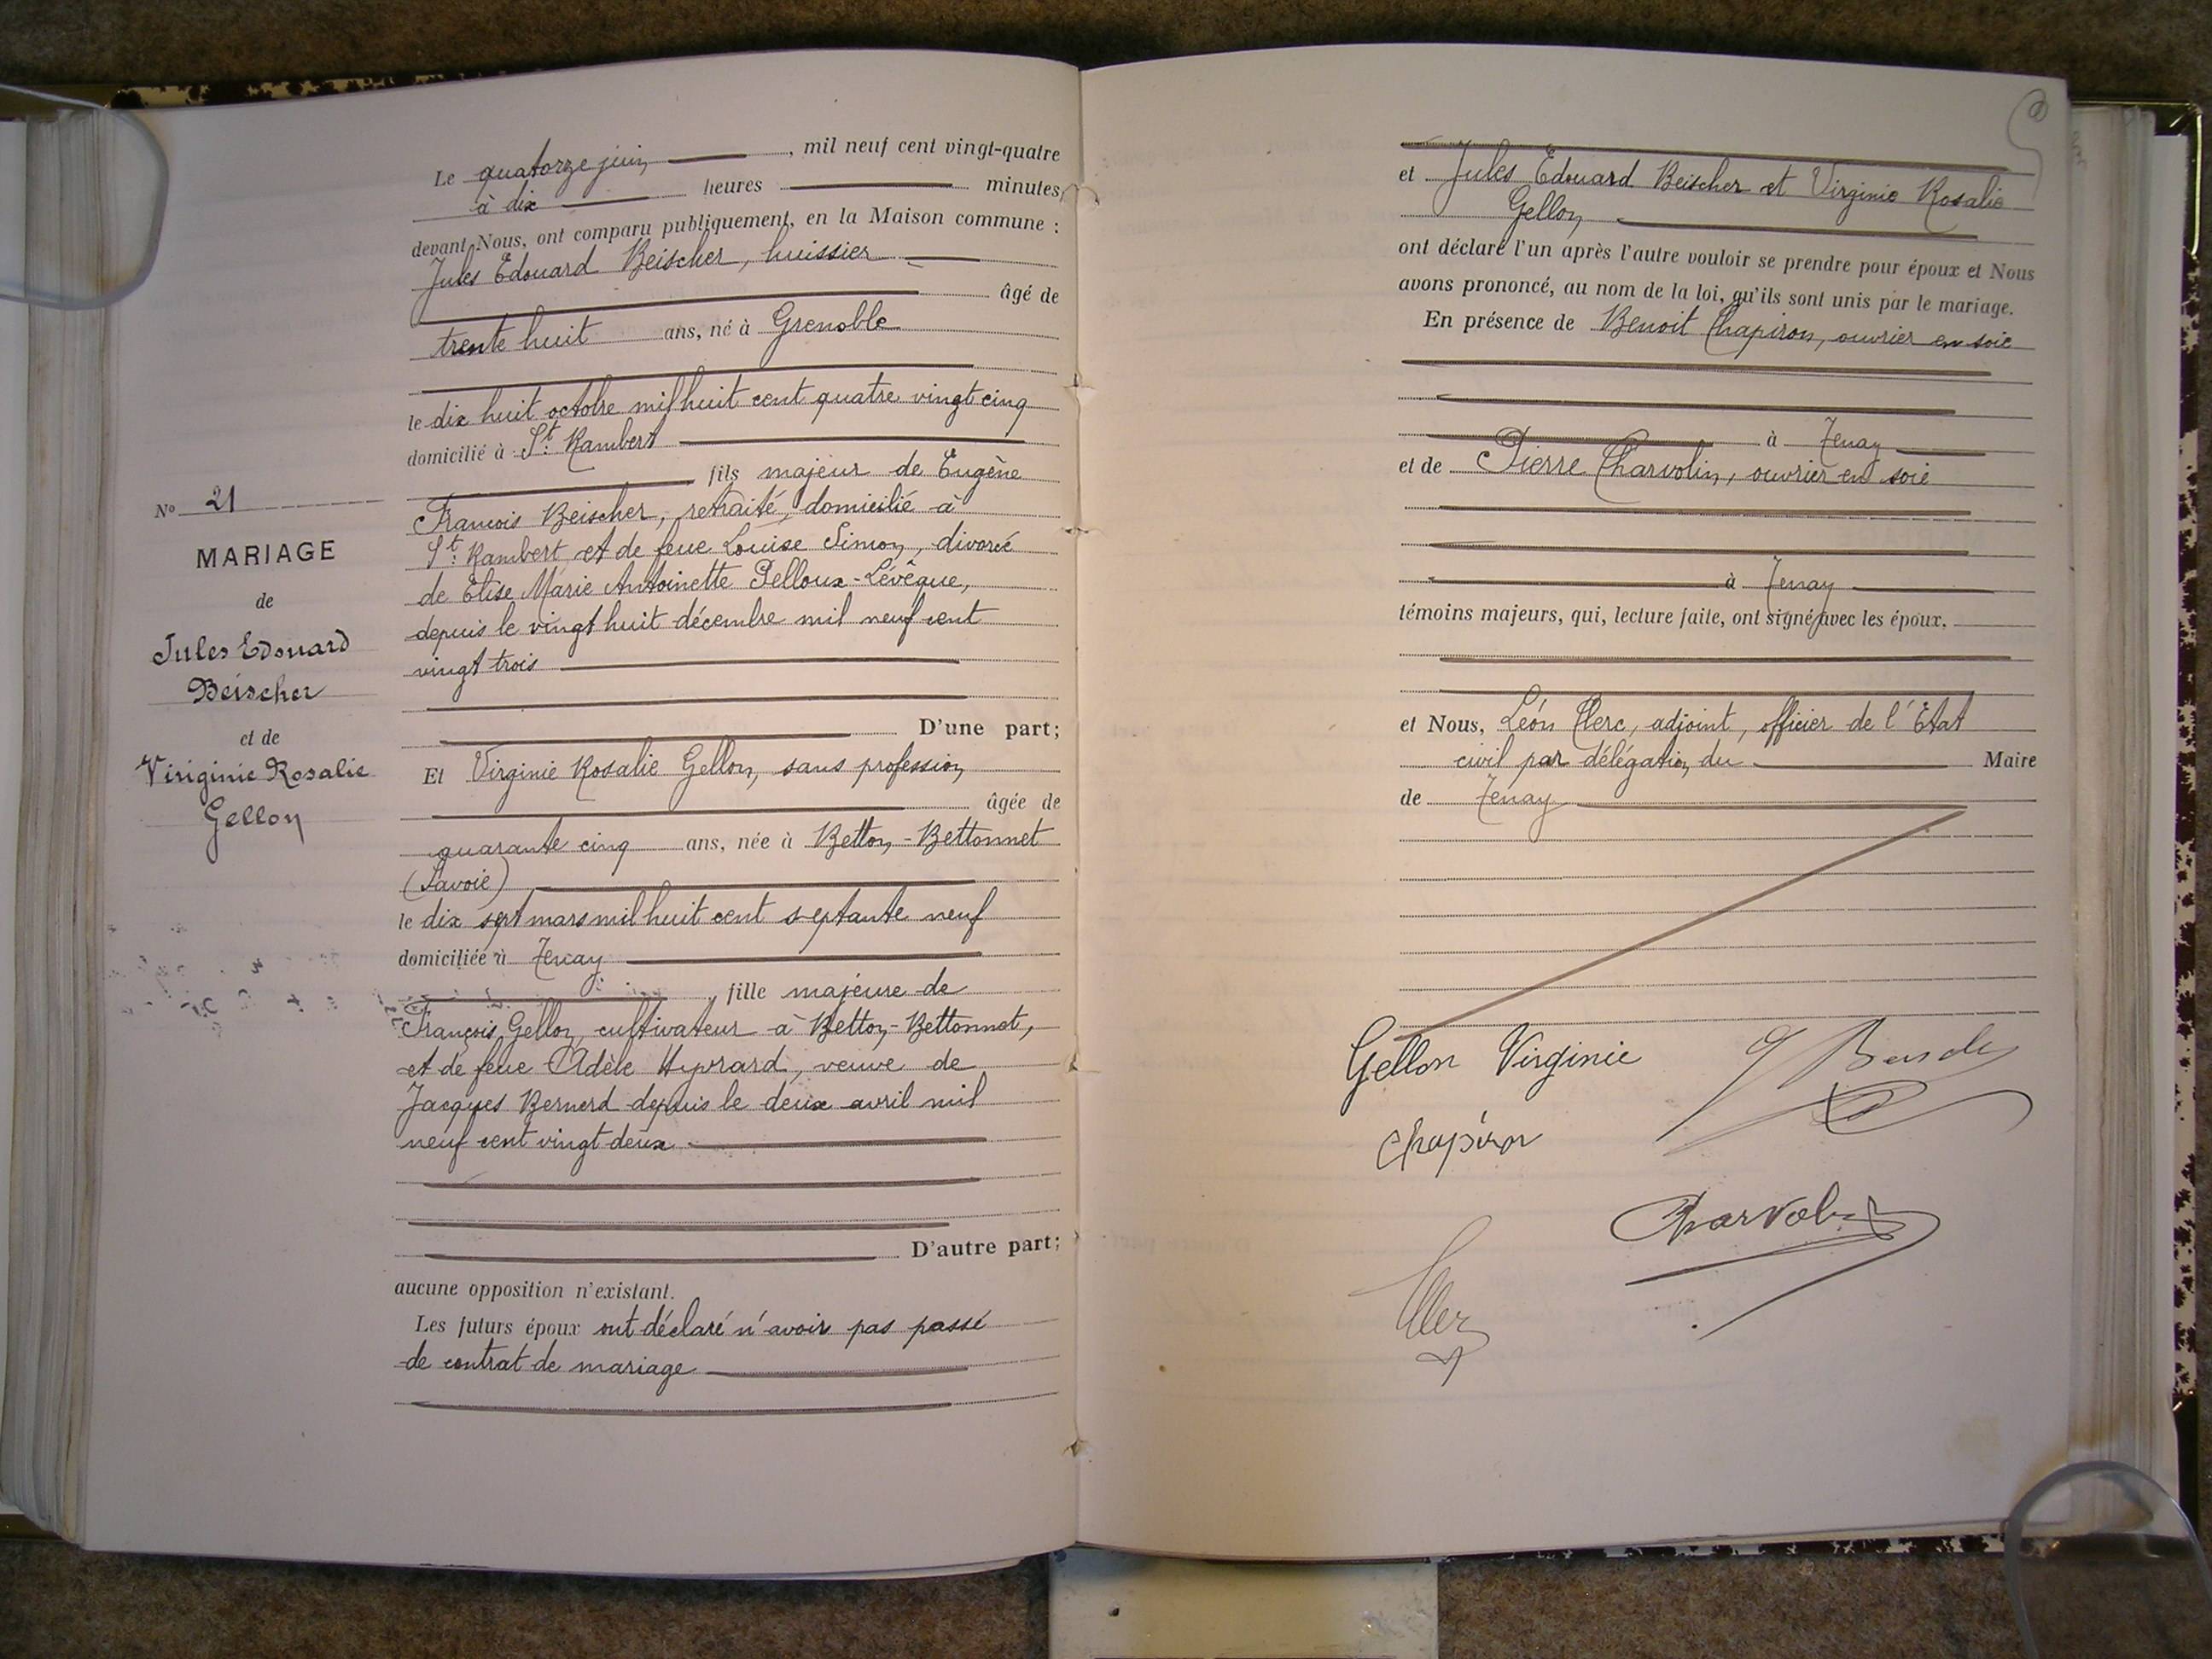 N° 21
MARIAGE
de
Jules Edouard
Beischer
et de
Viriginie Rosalie
Gellon
Le quatorze juin, mil neuf cent vingt-quatre
à dix heures minutes,
devant Nous, ont comparu publiquement, en la Maison commune :
Jules Edouard Beischer, huissier
âgé de
trente huit ans, né à Grenoble
le dix huit octobre mil huit cent quatre vingt cinq
domicilié à St. Rambert
fils majeur de Eugène
François Beischer, retraité, domicilié à
St. Rambert et de feue Louise Simon, divorcé
de Elise Marie Antoinette Pelloux-Lévêque,
depuis le vingt huit décembre mil neuf cent
vingt trois
D'une part;
Et Virginie Rosalie Gellon, sans profession
âgée de
quarante cinq ans, née à Betton-Bettonnet
(Savoie)
le dix sept mars mil huit cent septante neuf
domiciliée à Tenay
fille majeure de
François Gellon, cultivateur à Betton-Bettonnet,
et de feue Adèle, veuve de
Jacques Bernerd depuis le deux avril mil
neuf cent vingt deux
D'autre part;
aucune opposition n'existant.
Les futurs époux ont déclaré n'avoir pas passé
de contrat de mariage
et Jules Edouard Beischer et Virginie Rosalie
Gellon
ont déclaré l'un après l'autre vouloir se prendre pour époux et Nous
avons prononcé, au nom de la loi, qu'ils sont unis par le mariage.
En présence de Benoit Chapiron, ouvrier en soie
à Tenay
et de Pierre Charvolin, ouvrier en soie
à Tenay
témoins majeurs, qui, lecture faite, ont signé avec les époux.
et Nous, Léon Clerc, adjoint, officier de l'Etat
civil par délégation du Maire
de Tenay
Gellon Virginie
Chapiron
Charvolin